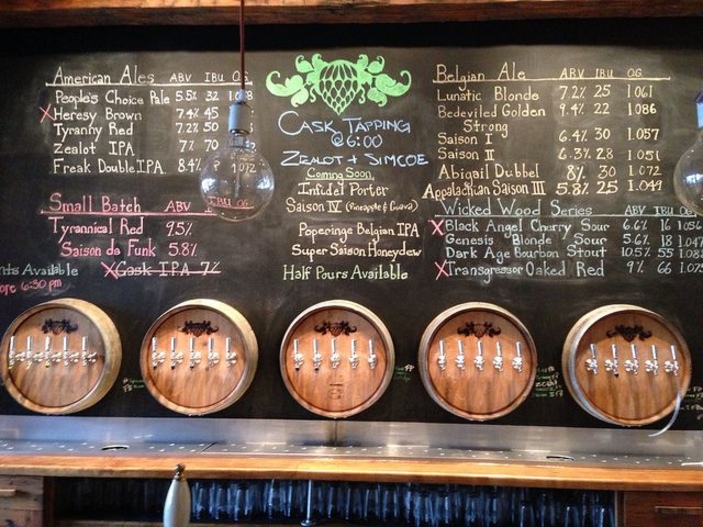 American Ales ABV IBU OG
People's Choice Pale 5.5% 32
X Heresy Brown 7.4% 45
Tyranny Red 7.2% 50
Zealot IPA 7% 70
Freak Double IPA 8.4%
Small Batch IBU
Tyrannical Red 9.5%
Saison da Funk 5.8%
X Cask IPA 7%
Available
6:30 pm
Cask Tapping
@ 6:00
Zealot + Simcoe
Coming Soon
Infidel Porter
Saison IV (Pineapple & Guava)
Poperinge Belgian IPA
Super Saison Honeydew
Half Pours Available
Belgian Ale ABV IBU OG
Lunatic Blonde 7.2% 25 1.061
Bedeviled Golden 9.4% 22 1.086
Strong
Saison I 6.4% 30 1.057
Saison II 6.3% 28 1.051
Abigail Dubbel 8% 30 1.072
Appalachian Saison III 5.8% 25 1.049
Wicked Wood Series ABV IBU OG
X Black Angel Cherry Sour 6.6% 16 1.056
Genesis Blonde Sour 5.6% 18 1.047
Dark Age Bourbon Stout 10.5% 55
X Transgressor Oaked Red 9% 66